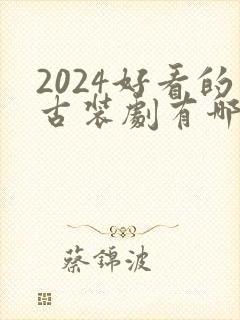 2024好看的
古装劇有哪
蔡錦波